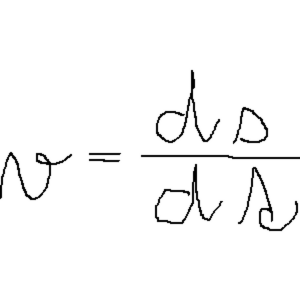 v = \frac{ds}{ds}